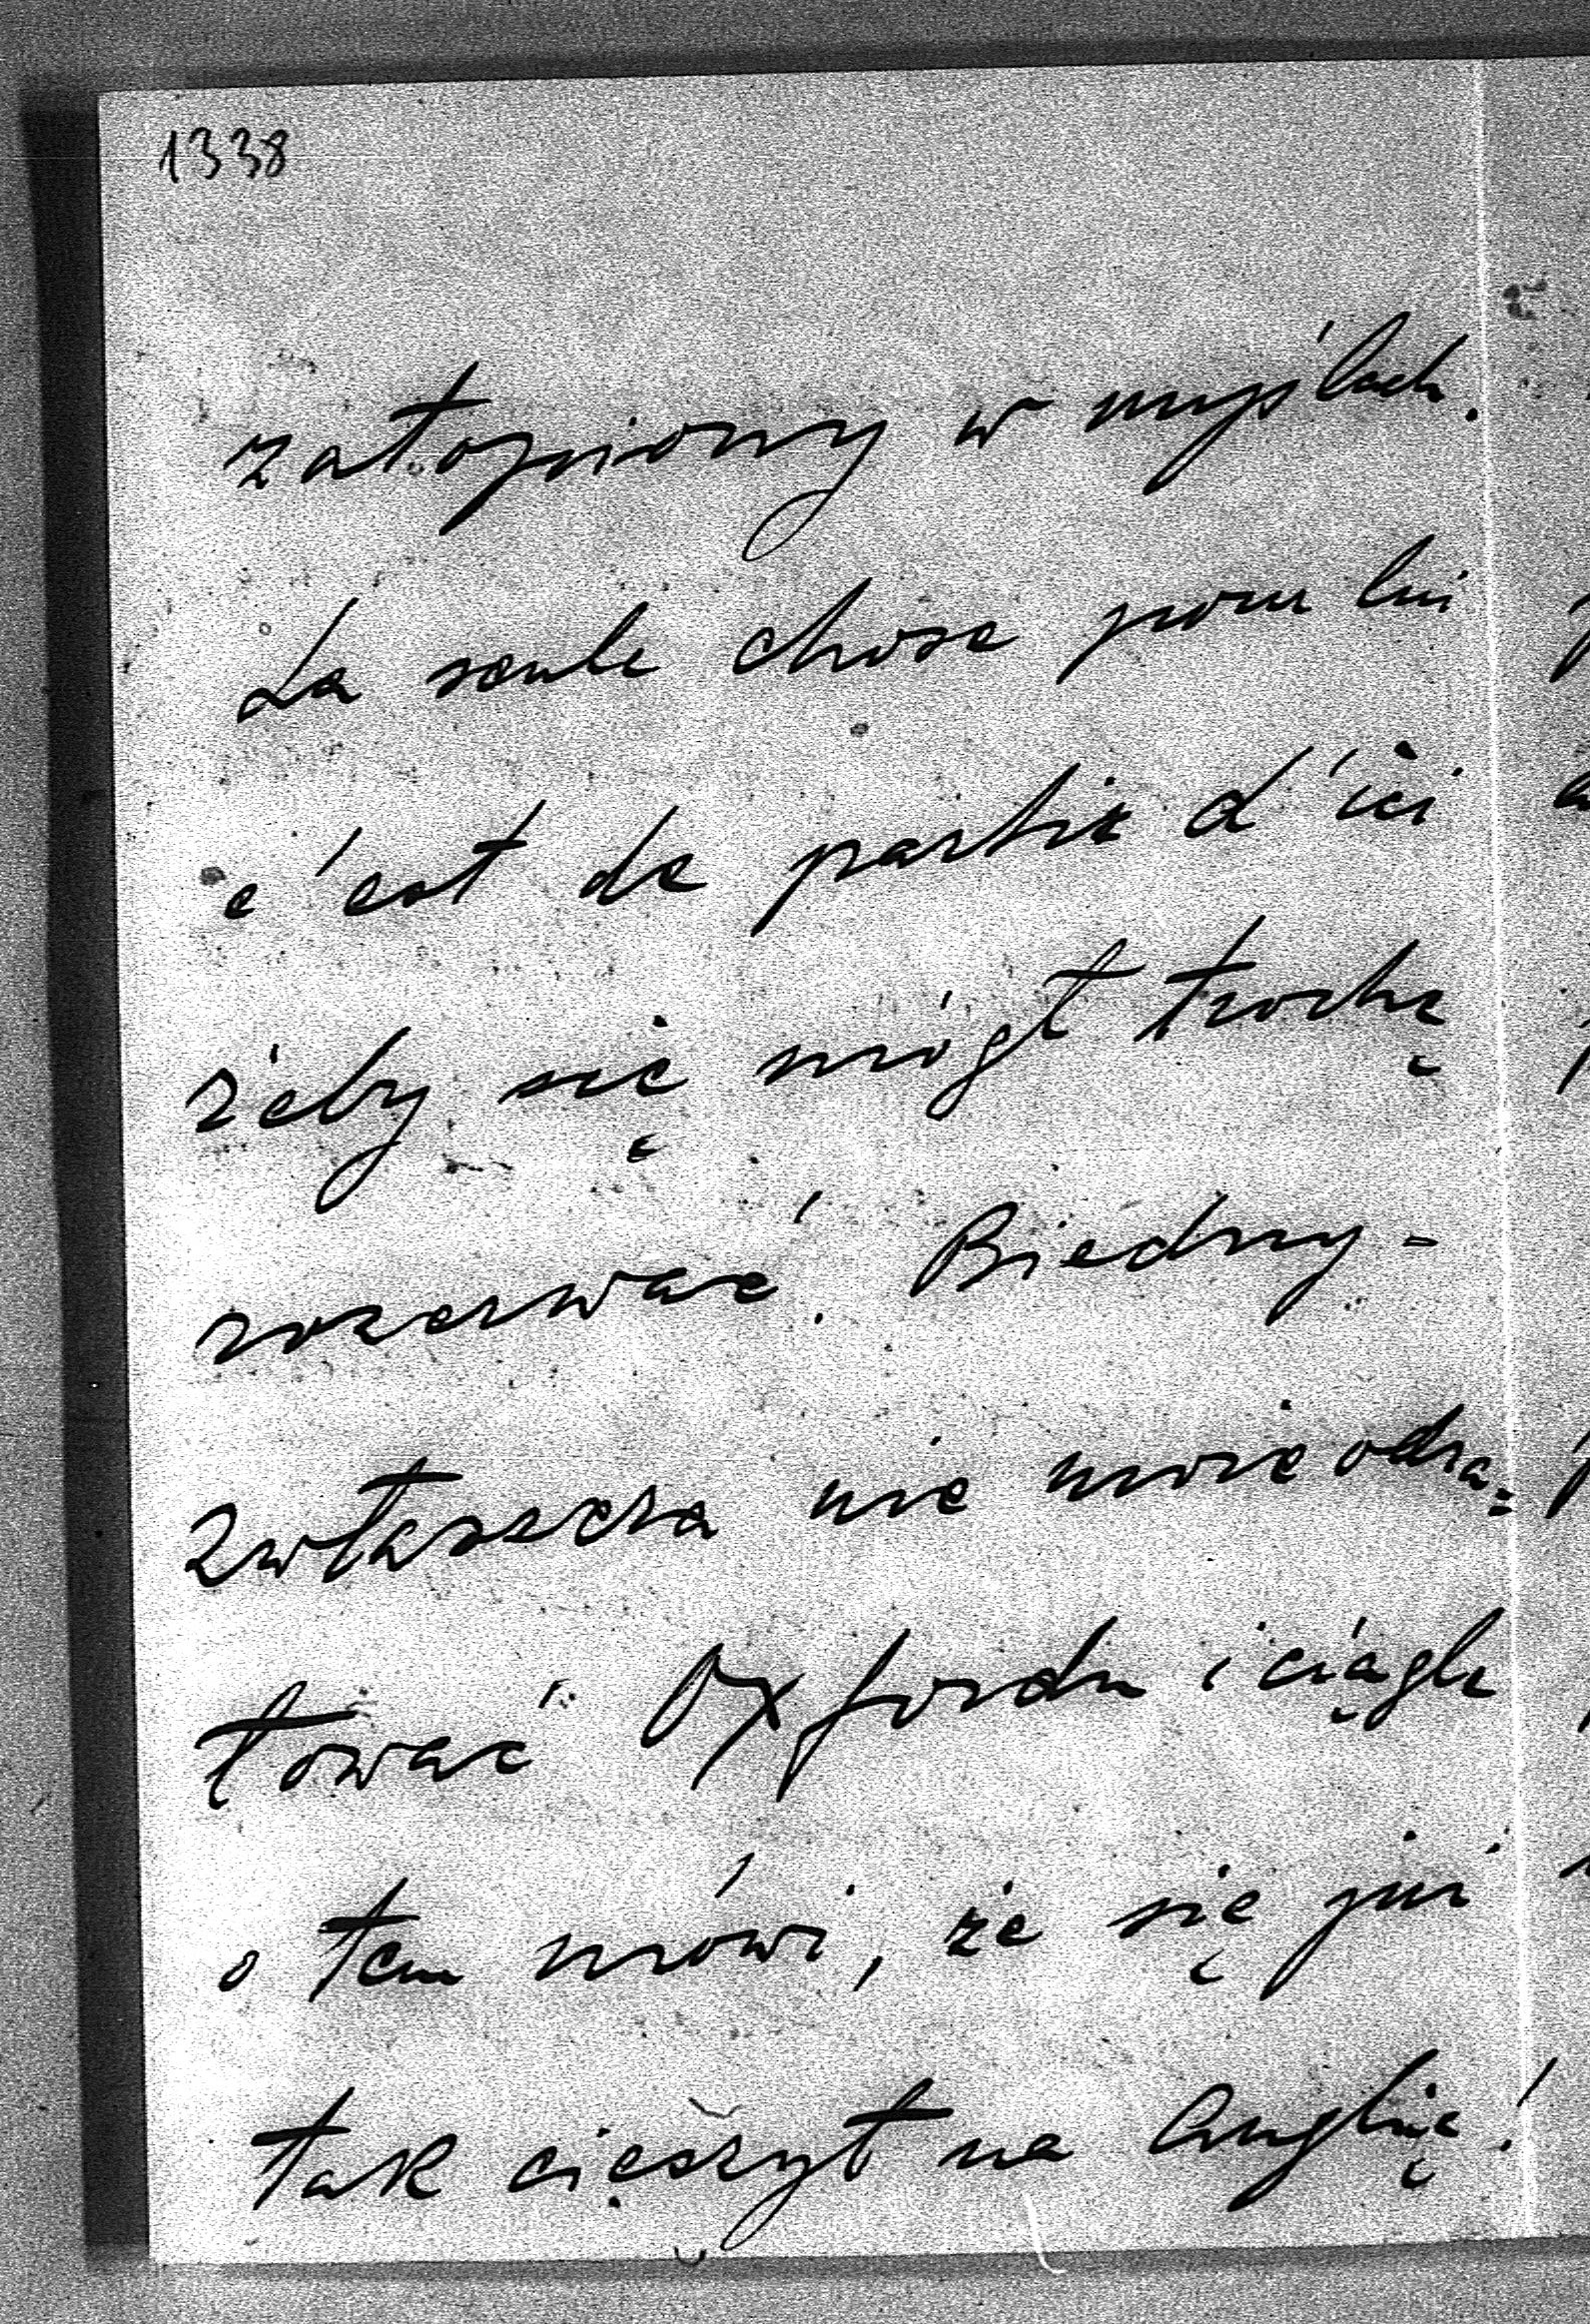 1338
zatopiony w myślach.
La seule chose pour lui
c'est de partir d'ici
żeby się mógł trochę
rozerwać. Biedny -
zwłaszcza nie może odża=
łować Oxfordu i ciągle
o tem mówi, że się już
tak cieszył na Anglię!